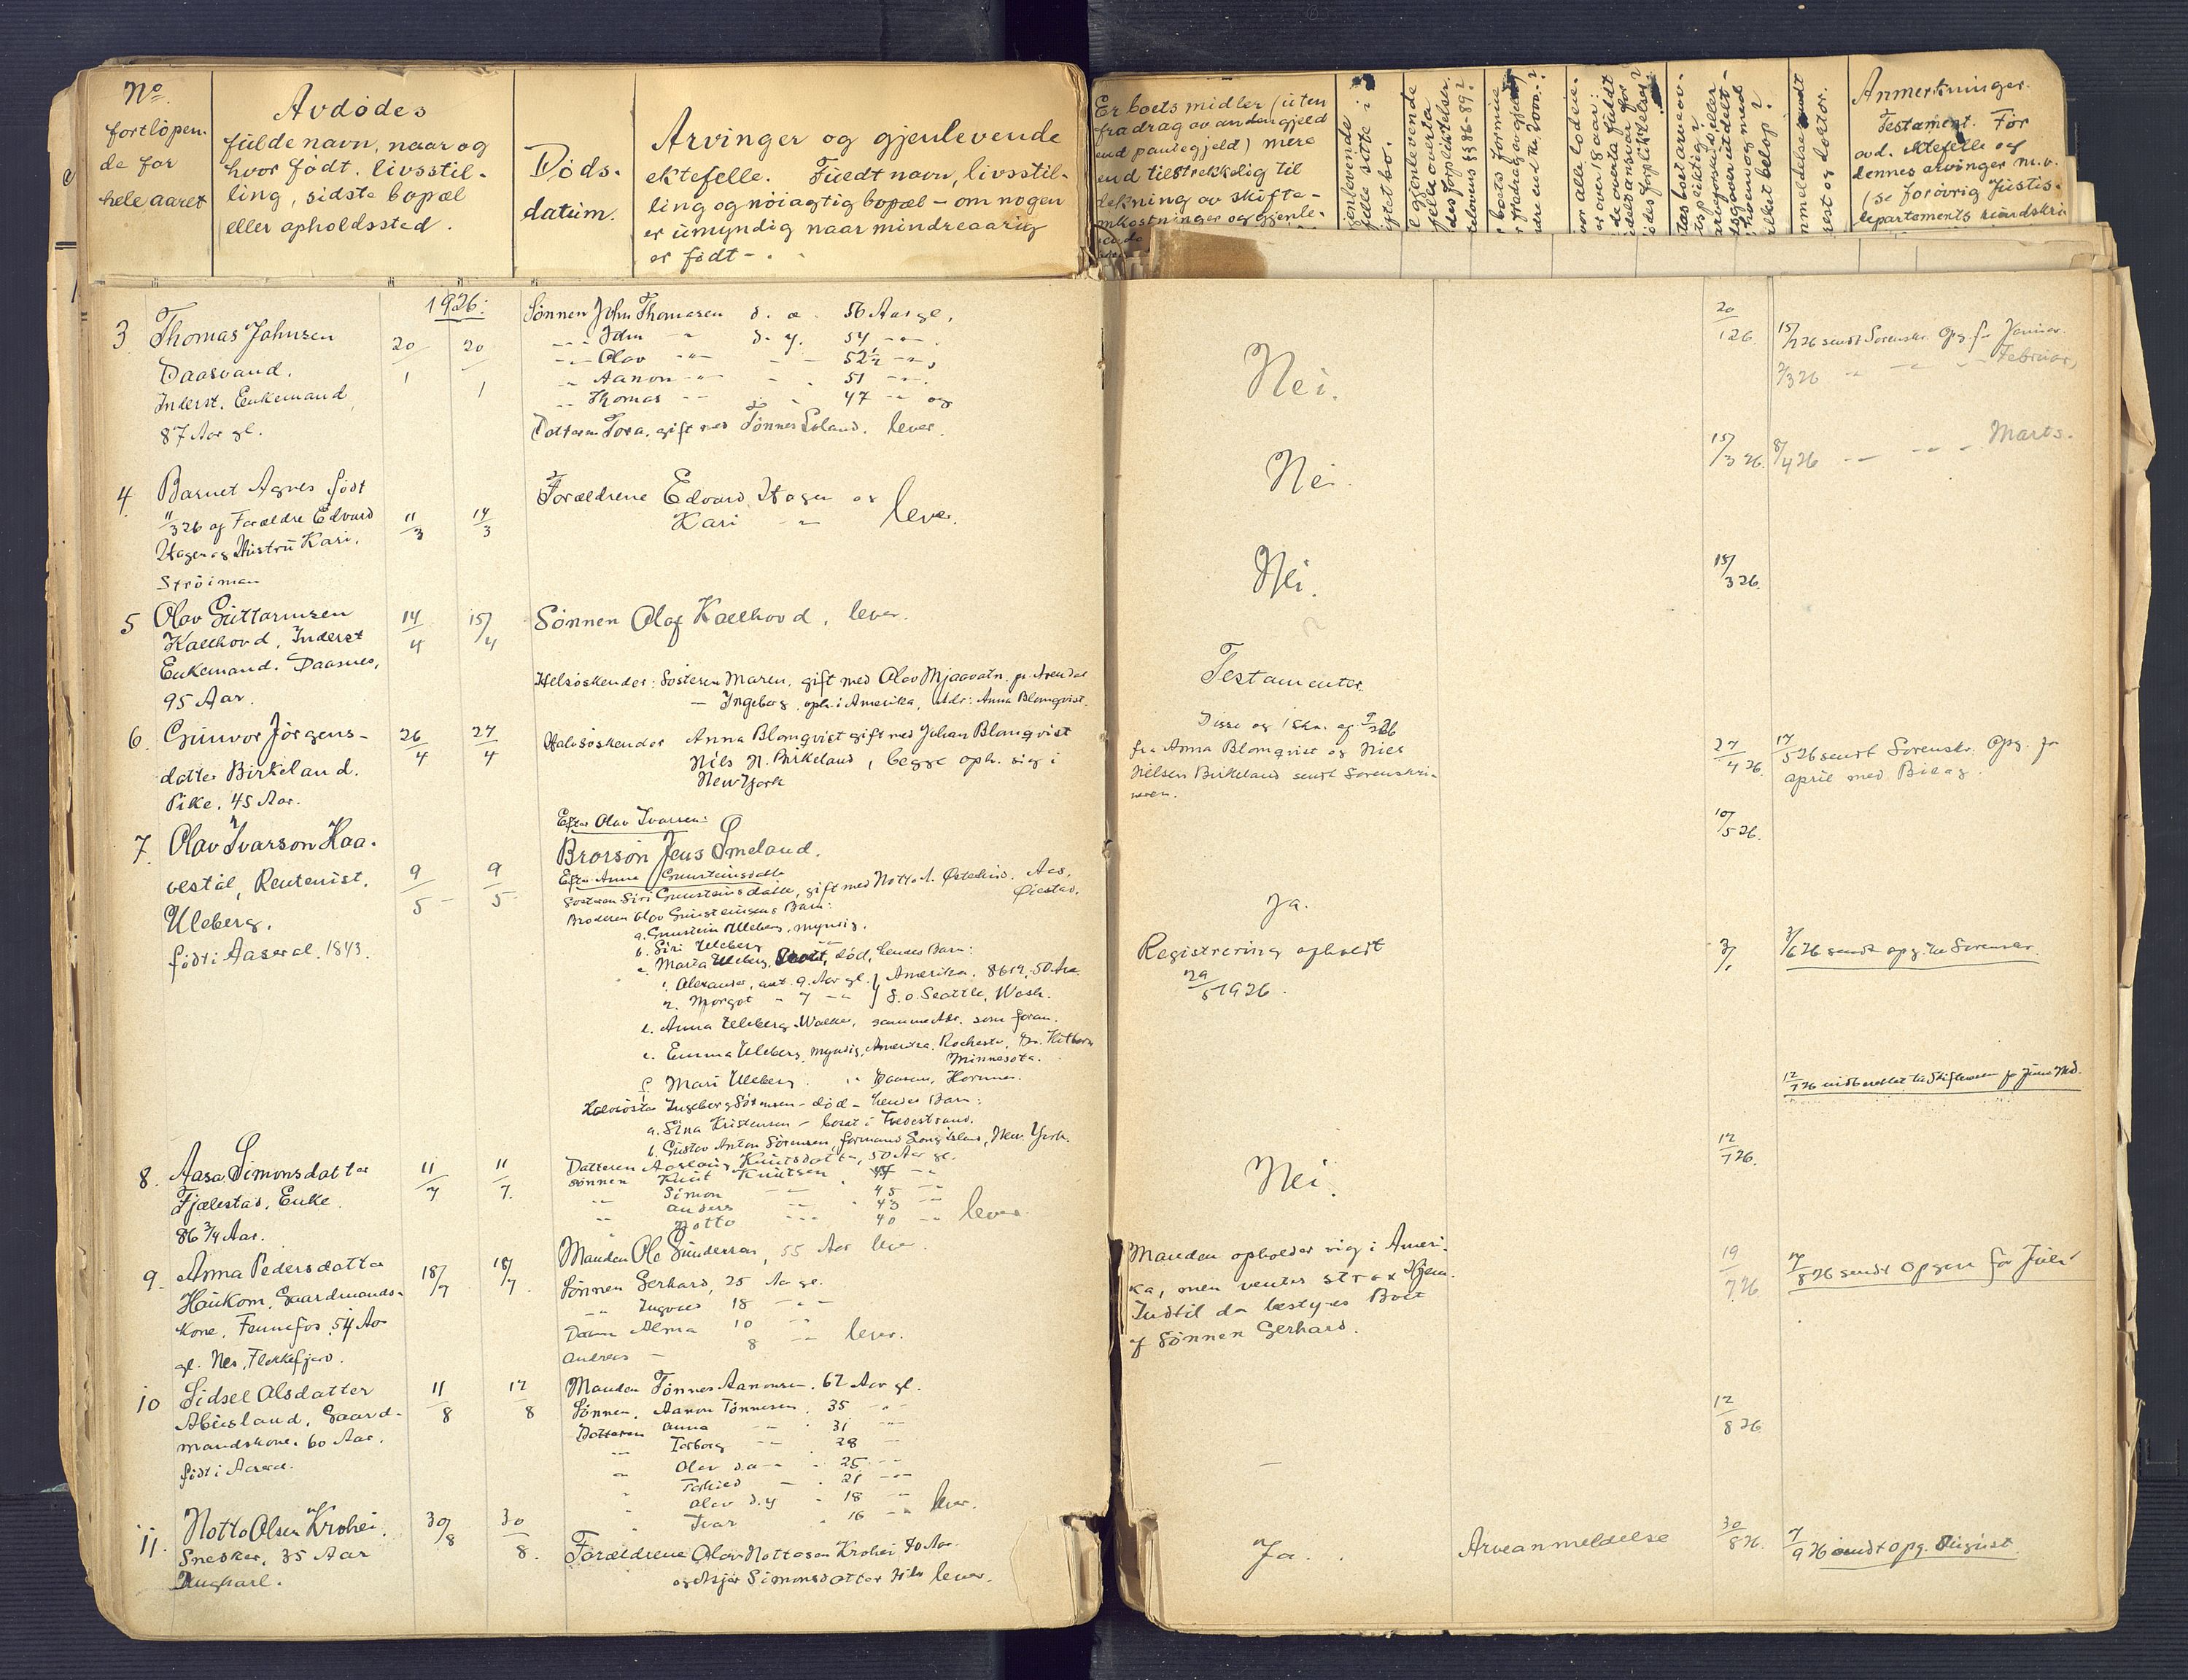 No.
fortløpen-
de for
hele aaret
Avdødes
fulde navn, naar og
hvor født, livsstil-
ling, sidste bopæl
eller opholdssted.
Døds-
datum.
Arvinger og gjenlevende
ektefelle. Fuldt navn, livsstil-
ling og nøiagtig bopæl - om nogen
er umyndig naar mindreaarig
er født -.
Er boets midler (uten
fradrag av anden gjeld
end pantegjeld) mere
end tilstrekkelig til
dekning av skifte-
omkostninger og gjenle-
Anmerkninger.
Testament. For
avd. ektefelle og
dennes arvinger m.v.
(se forøvrig Justis-
departements rundskri
1926:
3 Thomas Johnsen
Daasvand.
Inderst. Enkemand
87 Aar gl.
20/1 20/1
Sønnen John Thomasen d. æ. 56 Aar gl,
-"- John -"- d. y. 54 -"- .
-"- Olav -"- - 52½ -"-,
-"- Aanon -"- - 51 -"-.
-"- Thomas -"- - 47 -"- og
Datteren Tora, gift med Tønnes Loland. lever.
Nei.
20/1 26.
15/2 26 sendt Sorenskr. Opg. for Januar.
2/3 26 -"- -"- - Februar,
4 Barnet Agnes født
11/3 26 af Forældre Edvard
Hagen og Hustru Kari.
Strøiman
11/3 14/3
Forældrene Edvard Hagen og
Kari -"- lever.
Nei.
15/3 26.
8/4 26 -"- -"- - Marts.
5 Olav Guttormsen
Kallhovd, Inderst
Enkemand. Daasnes,
95 Aar.
14/4 15/4
Sønnen Olaf Kallhovd, lever.
Nei.
15/3 26.
6. Gunvor Jørgens-
datter Birkeland.
Pike. 45 Aar.
26/4 27/4
Helsøskender: Søsteren Maren, gift med Olav Mjaavatn, pr Arendal
- Ingeborg, oph. i Amerika, Adr: Anna Blomqvist.
Halvsøskender Anna Blomqvist gift med Johan Blomqvist
Nils N. Birkeland, begge oph. sig i
New York
Testamenter.
fra Anna Blomqvist og Niels
Nielsen Birkeland sendt Sorenskri-
veren.
27/4 26.
17/5 26 sendt Sorenskr. Opg. for
april med Bilag.
7. Olav Ivarson Haa-
vestøl, Rentenist,
Uleberg.
født i Aaseral. 1843.
9/5 9/5
Efter Olav Ivarsen:
Brorsøn Jens Smeland.
Efter Anna Gunsteinsdatter
Søsteren Siri Gunsteinsdatter, gift med Notto A. Østerhus. Aas,
Øiestad.
Broderen Olav Gunsteinsens Barn:
a. Gunstein Uleberg, myndig.
b. Siri Uleberg -"-
c. Maria Uleberg, død, hendes Barn:
1. Alexander, ant. 9. Aar gl. } Amerika. 8619, 50 Ave
2. Margot " 7 -"- } S. o. Seattle, Wash.
d. Anna Uleberg Walker, samme Adr. som foran.
e. Emma Uleberg, myndig, Amerika. Rochester,
Minnesota.
f. Mari Uleberg. " Hornnes.
Halvsøster Ingeborg Sørensen - død - hendes Barn:
a. Sina Kristensen - bosat i Tvedestrand.
b. Gustav Anton Sørensen, formand Long Island, New York.
Ja.
Registrering afholdt
29/5 1926.
10/5 26.
3/6 26 sendt opg. til Sorenskr.
12/7 26 indberettet til Skifteretten for Juni Md.
8. Aasa Simonsdatter
Fjælestad, Enke
86 3/4 Aar.
11/7 11/7.
Datteren Aaslaug Knutsdatter, 50 Aar gl.
Sønnen Knut Knutsen . 47 -"-
" Simon -"- 45 -"-
" Anders -"- 43 -"-
" Notto -"- 40 -"- lever.
Nei.
12/7 26.
9. Anna Pedersdatter
Haukom, Gaardmands-
kone, Fennefos. 54 Aar
gl. Nes, Flekkefjord.
18/7 18/7.
Manden Ole Gunderson, 55 Aar lever.
Sønnen Gerhard, 25 Aar gl.
-"- Ingvald 18 -"-
Datter Alma 10 -"-
Andreas - 8 -"- lever.
Manden opholder sig i Ameri-
ka, men ventes strax Hjem.
Indtil da bestyres Boet
af Sønnen Gerhard.
19/7 26
17/8 26 sendt Opgave for Juli
10 Sidsel Olsdatter
Abusland, Gaard-
mandskone. 60 Aar.
født i Aaseral.
11/8 12/8
Manden Tønnes Aanonsen. 62 Aar gl.
Sønnen. Aanon Tønnesen. 35 -"-
Datteren Anna -"- 31 -"-
-"- Torborg -"- 28 -
" Olav d.æ -"- 25 -"-
" Torkild - 21 -"-
" Olav d.y - 18 -"-
" Ivar . 16 -"- lever.
-
12/8 26
11. Notto Olsen Krohei.
Snedker, 35 Aar
Ungkarl.
30/8 30/8.
Forældrene Olav Nottosen Krohei 70 Aar.
og Asjær Simonsdatter lever.
Ja.
Arveanmeldelse
30/8 26.
7/9 26 sendt opg. August